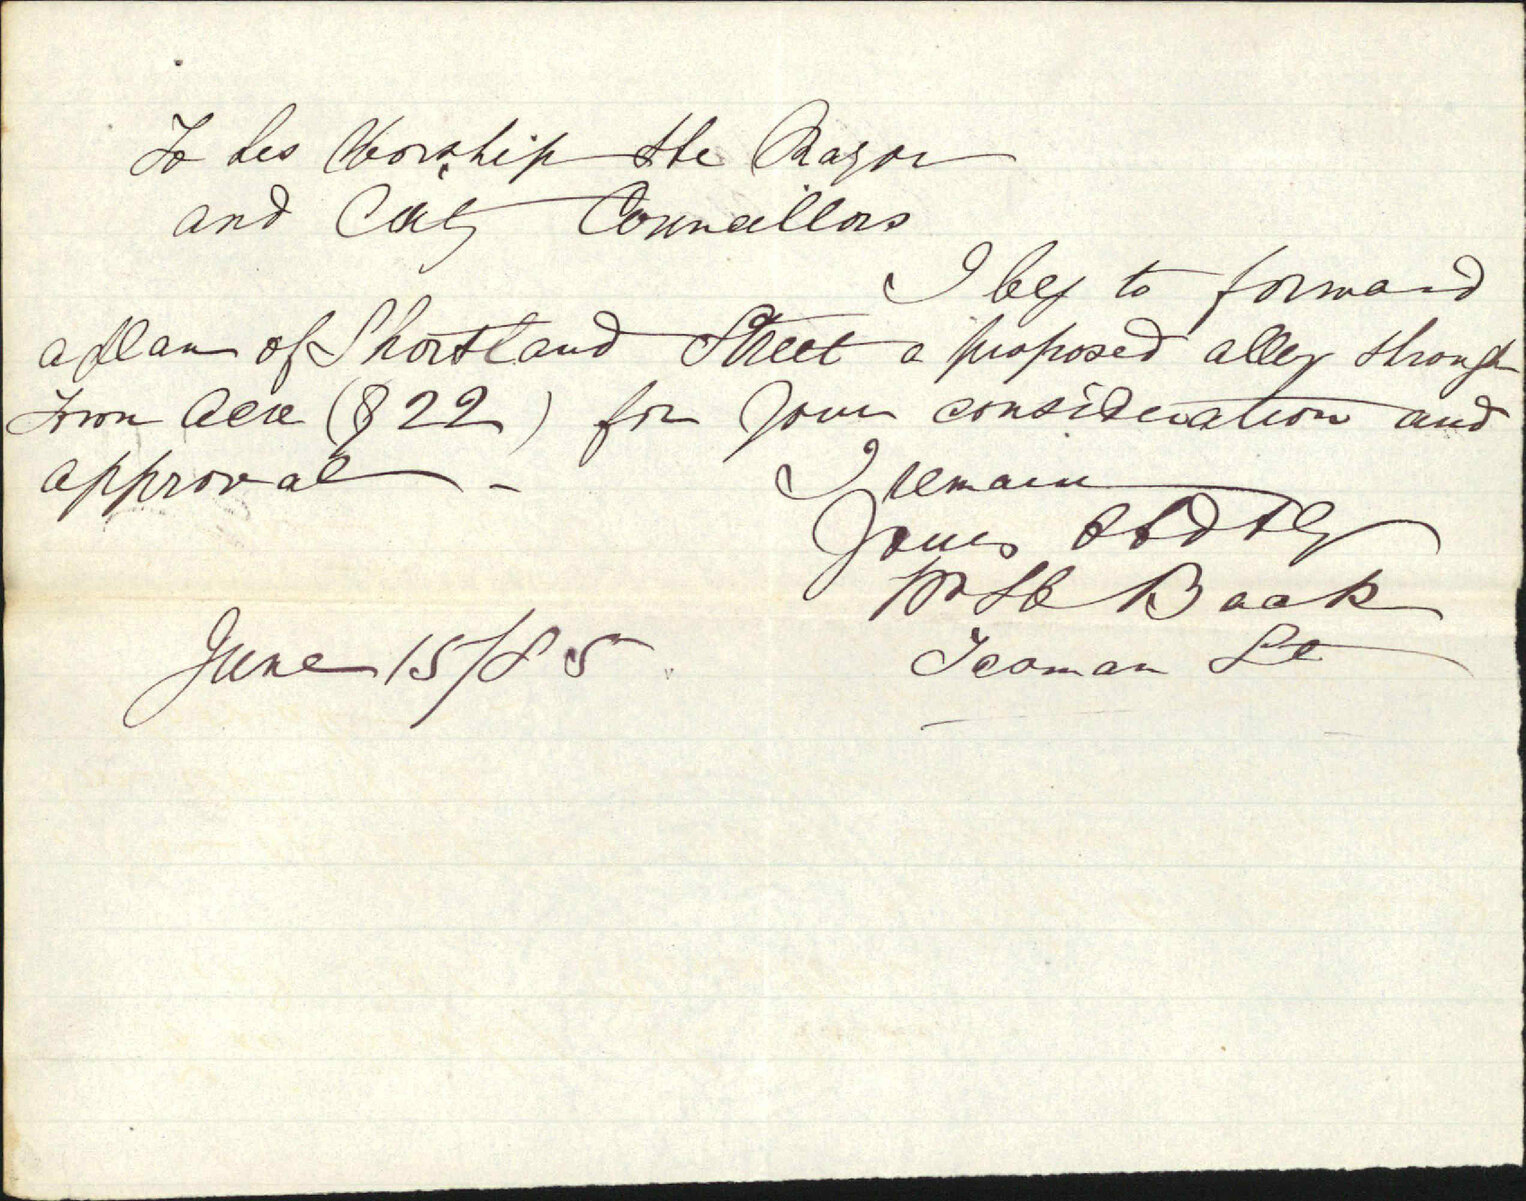 To his Worship the Mayor
and City Councillors
I beg to forward
a plan of Shortland Street a proposed alley through
Town Acre (822) for your consideration and
approval -
I remain
Yours Obdtly
Wm H Baak
Yeoman St
June 15/85